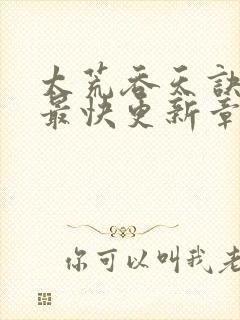 大荒吞天訣
最快更新章
你可以叫我老